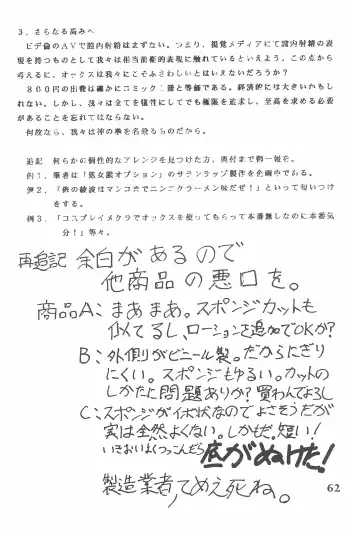 3．さらなる高みへ
　ビデ倫のAVで膣内射精はまずない。つまり、視覚メディアにて膣内射精の表
現を持つものとして我々は相当前衛的表現に触れているといえよう。この点から
考えるに、オックスは我々にこそふさわしいとはいえないだろうか？
　800円の出費は確かにコミック二冊と等価である。経済的には大きいかもし
れない。しかし、我々は全てを犠牲にしてでも極限を追求し、至高を求める必要
があることを忘れてはならない。
　何故なら、我々は神の拳を名乗るものだから。
追記　何らかの個性的なアレンジを見つけた方、奥付まで御一報を。
例1．筆者は「処女膜オプション」のサランラップ製作を企画中である。
例2．「俺の綾波はマンコまでニンニクラーメン味だぜ！」といって匂いつけ
をする。
例3．「コスプレイメクラでオックスを使ってもらって本番無しなのに本番気
分！」等々。
再追記 余白があるので
他商品の悪口を。
商品A：まあまあ。スポンジカットも
似てるし、ローションを追加でOKか？
B：外側がビニール製。だからにぎり
にくい。スポンジもゆるい。カットの
しかたに問題ありか？買わんでよろし
C：スポンジがイボ状なのでよさそうだが
実は全然よくない。しかもだ。短い！
いきおいよくつっこんだら底がぬけた！
製造業者，てめえ死ね。
62